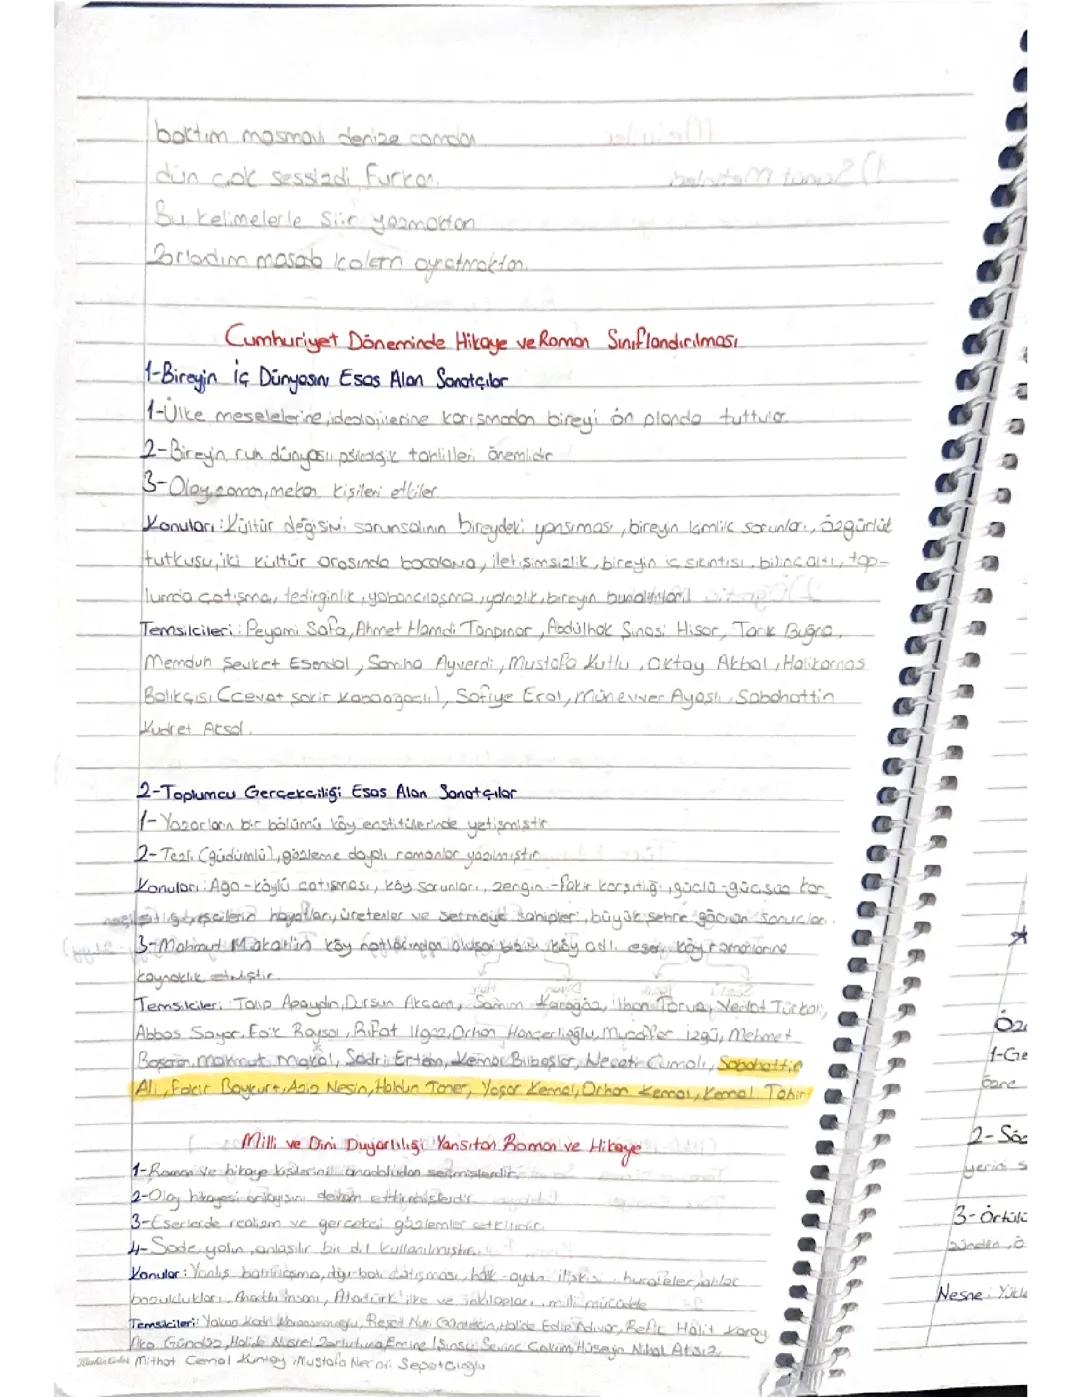 baktım masmavi denize camdan
dün çok sessizdi Furkan.
Bu kelimelerle şiir yazmaktan
Zorlandım masab kalem oynatmaktan.
Cumhuriyet Döneminde Hikaye ve Roman Sınıflandırılması
1-Bireyin İç Dünyasını Esas Alan Sanatçılar
1-Ülke meselelerine, ideolojilerine karışmadan bireyi ön planda tuttular.
2-Bireyin ruh dünyası, psikolojik tahlilleri önemlidir
3-Olay, zaman, mekan kişileri etkiler.
Konuları: Kültür değişimi sorunsalının bireydeki yansıması, bireyin kimlik sorunları, özgürlük
tutkusu, iki kültür arasında bocalama, iletişimsizlik, bireyin iç sıkıntısı, bilinçaltı, top-
lumda çatışma, tedirginlik, yabancılaşma, yalnızlık, bireyin bunalımları
Temsilcileri: Peyami Safa, Ahmet Hamdi Tanpınar, Abdülhak Şinasi Hisar, Tarık Buğra,
Memduh Şevket Esendal, Samiha Ayverdi, Mustafa Kutlu, Oktay Akbal, Halikarnas
Balıkçısı (Cevat şakir Kabaağaçlı), Safiye Erol, Münevver Ayaşlı, Sabahattin
Kudret Aksal.
2-Toplumcu Gerçekçiliği Esas Alan Sanatçılar
1-Yazarların bir bölümü köy enstitülerinde yetişmiştir
2-Tezli (güdümlü), gözleme dayalı romanlar yazılmıştır
Konuları: Ağa-köylü çatışması, köy sorunları, zengin-fakir karşıtlığı, güçlü-güçsüz kar
işçilerin hayatları, üretenler ve sermaye sahipleri, büyük şehre göçün sonuçları.
3-Mahmut Makal'ın köy notlarından oluşan bizim köy adlı eseri köy romanlarına
kaynaklık etmiştir.
Temsilcileri: Talip Apaydın, Dursun Akçam, Samim Kocagöz, İlhan Tarus, Vedat Türkali,
Abbas Sayar, Faik Baysal, Rıfat Ilgaz, Orhan Hançerlioğlu, Muzaffer izgü, Mehmet
Başaran, Mahmut Makal, Sadri Ertem, Kemal Bilbaşar, Necati Cumalı, Sabahattin
Ali, Fakir Baykurt, Aziz Nesin, Haldun Taner, Yaşar Kemal, Orhan Kemal, Kemal Tahir
Milli ve Dini Duyarlılığı Yansıtan Roman ve Hikaye
1-Roman ve hikaye kişilerini anadoludan seçmişlerdir.
2-Olay hikayesi anlayışını devam ettirmişlerdir.
3-Eserlerde realizm ve gerçekçi gözlemler etkilidir.
4-Sade, yalın, anlaşılır bir dil kullanılmıştır.
Konular: Yanlış batılılaşma, doğu-batı çatışması, halk-aydın ilişkisi, hurafeler, ahlak
bozuklukları, Anadolu insanı, Atatürk ilke ve inkılapları, milli mücadele
Temsilcileri: Yakup Kadri Karaosmanoğlu, Reşat Nuri Güntekin, Halide Edip Adıvar, Refik Halit Karay
Aka Gündüz, Halide Nusret Zorlutuna, Emine Işınsu, Sevinç Çokum, Hüseyin Nihal Atsız,
Mithat Cemal Kuntay, Mustafa Necati Sepetçioğlu
1-Ge
özne
2-Söz
yerini s
3-Örtülü
Nesne: Yükl